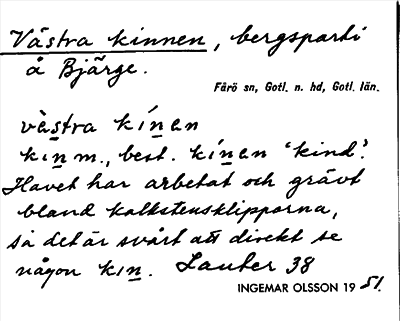 Västra kinnen, bergsparti
å Bjärge.
Fårö sn, Gotl. n. hd, Gotl. län.
västra kínen
kın m., best. kínen ‘kind’.
Havet har arbetat och grävt
bland kalkstensklipporna,
så det är svårt att direkt se
någon kın. Lauter 38
INGEMAR OLSSON 1951.